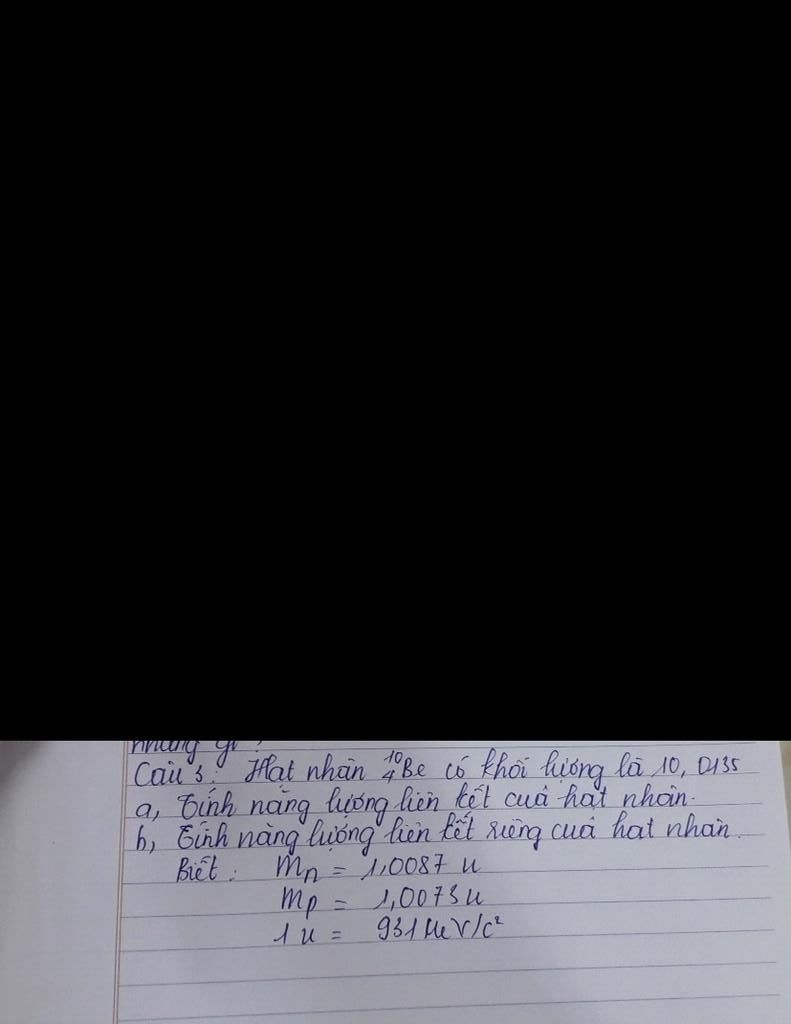 những gì?
Câu 3: Hạt nhân ¹⁰₄Be có khối lượng là 10,0135
a, Tính năng lượng liên kết của hạt nhân.
b, Tính năng lượng liên kết riêng của hạt nhân.
Biết: mₙ = 1,0087 u
mₚ = 1,0073 u
1 u = 931 MeV/c²